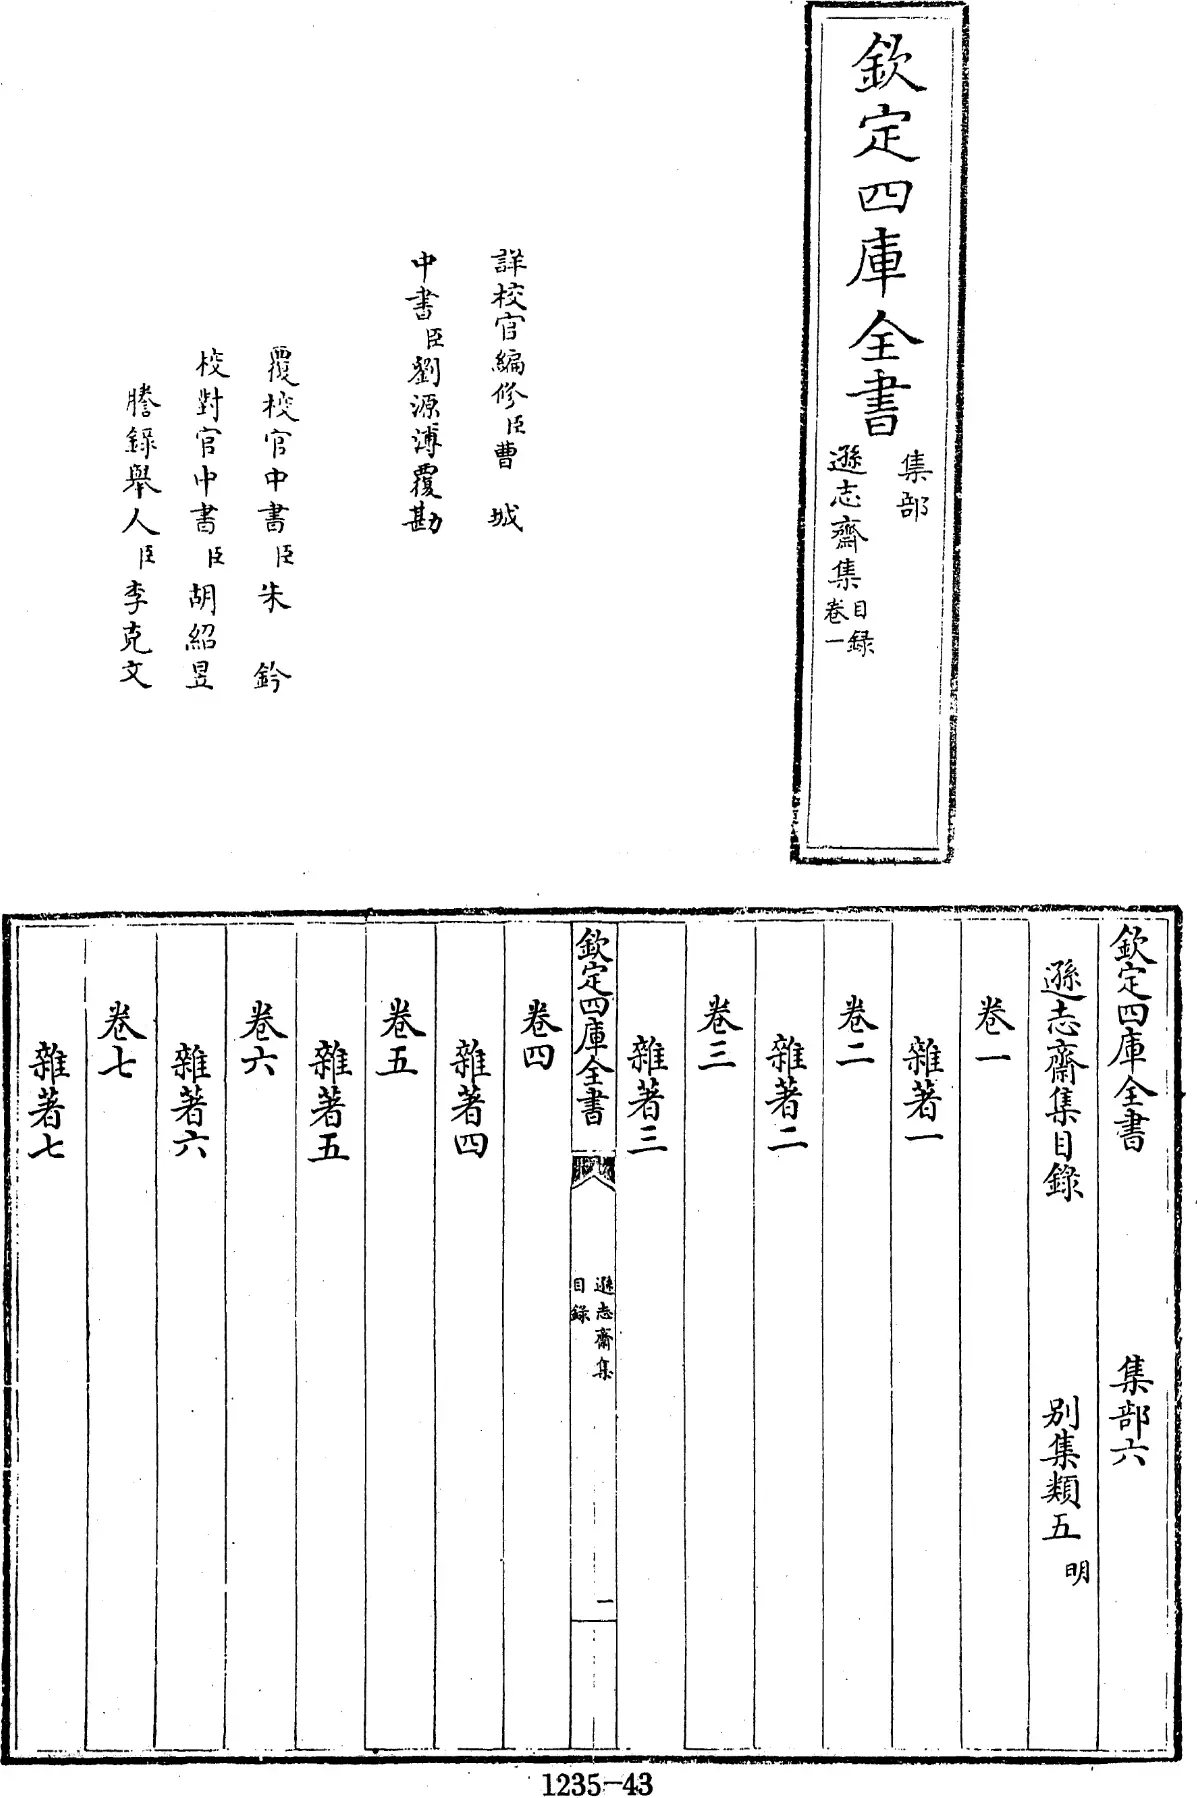 欽定四庫全書
集部
遜志齋集
目録
卷一
詳校官編修臣曹城
中書臣劉源溥覆勘
覆校官中書臣朱鈐
校對官中書臣胡紹昱
謄録舉人臣李克文
欽定四庫全書 集部六
遜志齋集目録 别集類五 明
卷一
雜著一
卷二
雜著二
卷三
雜著三
欽定四庫全書
遜志齋集
目録
一
卷四
雜著四
卷五
雜著五
卷六
雜著六
卷七
雜著七
1235-43